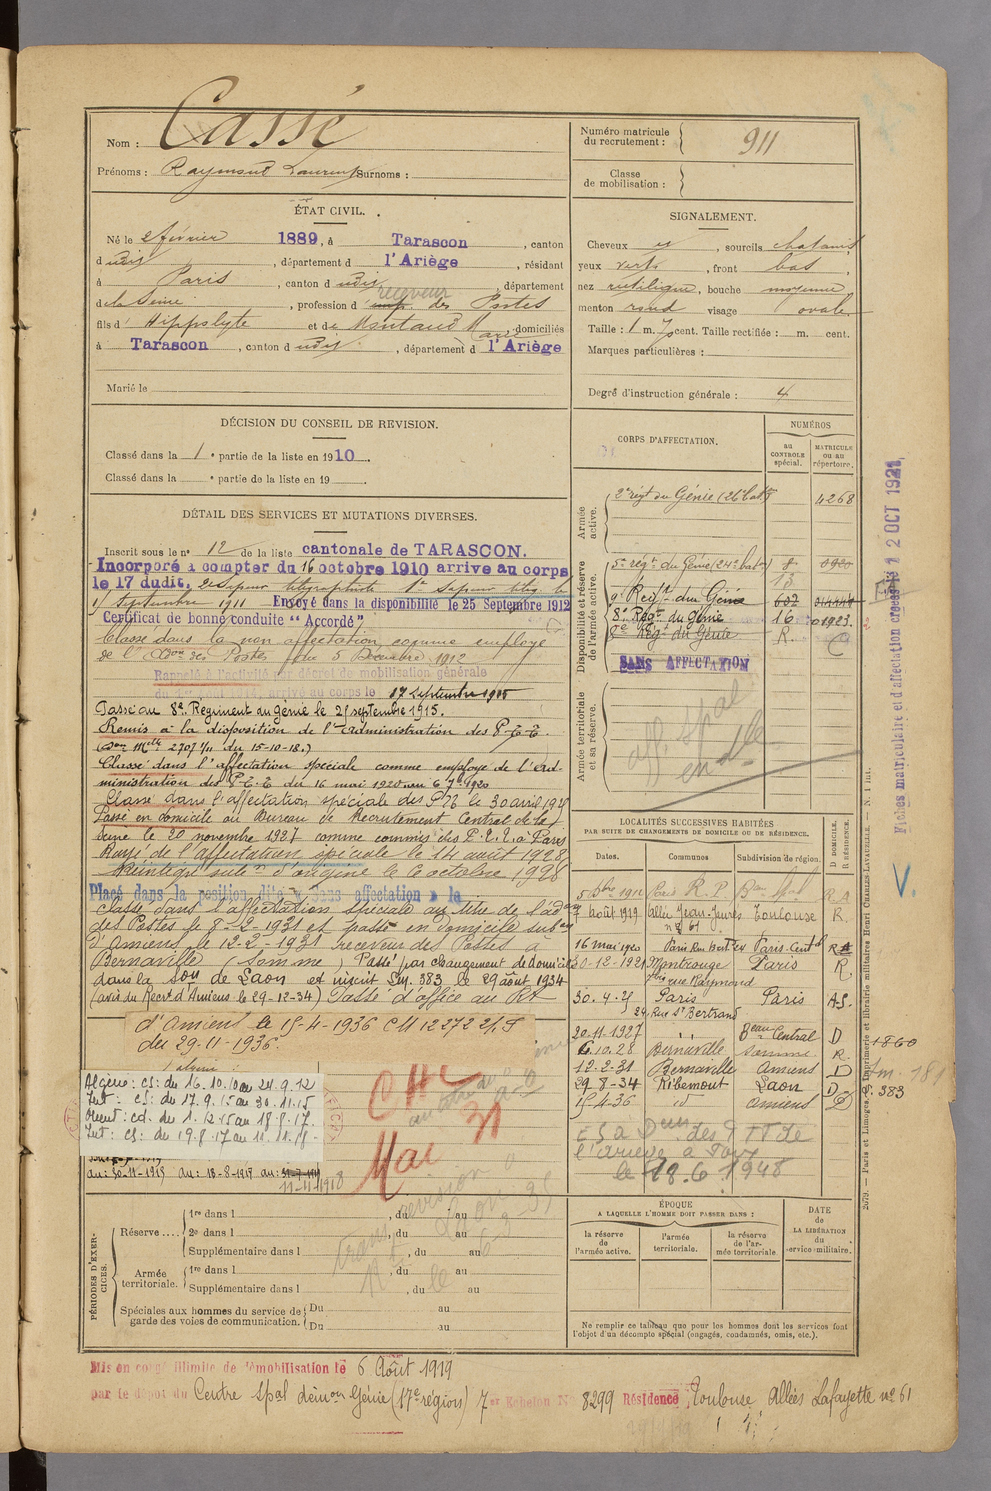 Nom : Cassé
Prénoms : Raymond Laurent Surnoms :
ÉTAT CIVIL.
Né le 2 février 1889, à Tarascon, canton
dudit, département d l'Ariège, résidant
à Paris, canton dudit, département
de la Seine, profession d receveur des Postes
fils d' Hippolyte et de Montaud Marie, domiciliés
à Tarascon, canton dudit, département d l'Ariège
Marié le
DÉCISION DU CONSEIL DE REVISION.
Classé dans la 1e partie de la liste en 1910.
Classé dans la e partie de la liste en 19
DÉTAIL DES SERVICES ET MUTATIONS DIVERSES.
Inscrit sous le no 12 de la liste cantonale de TARASCON.
Incorporé à compter du 16 octobre 1910 arrive au corps
le 17 dudit, 2e Sapeur télégraphiste 1er Sapeur télég le
1er Septembre 1911 Envoyé dans la disponibilité le 25 Septembre 1912
Certificat de bonne conduite "Accordé"
Classé dans la non affectation comme employé
de l'Adon des Postes du 5 Décembre 1912
Rappelé à l'activité par décret de mobilisation générale
du 1er août 1914, arrivé au corps le 17 Septembre 1915
Passé au 8e Régiment du génie le 21 septembre 1915.
Remis à la disposition de l'administration des P-T-T.
(Don Mlle 2707 1/11 du 15-10-18.)
Classé dans l'affectation spéciale comme employé de l'ad-
ministration des P.T.T du 16 mai 1920 au 6 7bre 1920
Classé dans l'affectation spéciale des PTT le 30 avril 1921
Passé en domicile au Bureau de Recrutement Central de la
Seine le 20 novembre 1927 comme commis des P.T.T. à Paris
Rayé de l'affectation spéciale le 14 août 1928
Réintégré subon d'origine le 6 octobre 1928
Placé dans la position dite « sans affectation » le
Classé dans l'affectation spéciale au titre de l'adon
des Postes le 8-2-1931 et passé en domicile subon
d'Amiens le 12-2-1931 receveur des Postes à
Bernaville (Somme) Passé par changement de domicile
dans la Son de Laon et inscrit Sm. 383 le 29 août 1934
(avis du Recrt d'Amiens le 29-12-34) Passé d'office au Rt
d'Amiens le 15-4-1936 CM 12272 2/1.S
du 29-11-1936.
Algérie: CS: du 16.10.10 au 24.9.12
Int: CS: du 17.9.15 au 30.11.15
Orient: cd. du 1.12.15 au 18.8.17.
Int: CS: du 19.8.17 au 11.11.18 -
au: 30-11-1915 au: 18-8-1917 au:
11-11-1918
PÉRIODES D'EXERCICES.
Réserve .... 1re dans l , du au
2e dans l , du au
Supplémentaire dans l , du au
Armée territoriale. 1re dans l , du au
Supplémentaire dans l , du au
Spéciales aux hommes du service de garde des voies de communication. Du au
Du au
Mis en congé illimité de démobilisation le 6 Août 1919
par le dépôt du Centre Spal démon Génie (17e région) 7er Echelon No 8299 Résidence Toulouse Allées Lafayette no 61
Numéro matricule du recrutement : 911
Classe de mobilisation :
SIGNALEMENT.
Cheveux et, sourcils chatains
yeux verts, front bas,
nez rectiligne, bouche moyenne
menton rond visage ovale
Taille : 1 m. 7 cent. Taille rectifiée : m. cent.
Marques particulières :
Degré d'instruction générale : 4
CORPS D'AFFECTATION.
NUMÉROS
au CONTROLE spécial.
MATRICULE ou au répertoire.
Armée active.
2e régt du Génie (26e bat) 4268
Disponibilité et réserve de l'armée active.
5e régt du Génie (24e bat) 8 0920
13
9e Regt du Génie 602
8e Régt du génie 16 01923.
8e Régt du Génie R.
SANS AFFECTATION
Armée territoriale et sa réserve.
aff. spal
en dle
LOCALITÉS SUCCESSIVES HABITÉES
PAR SUITE DE CHANGEMENTS DE DOMICILE OU DE RÉSIDENCE.
Dates. Communes Subdivision de région. D DOMICILE. R RÉSIDENCE.
5 Xbre 1912 Paris R.P. R.A
7 août 1919 Allées Jean-Jaurès no 61 Toulouse R.
16 mai 1920 Paris Rue Bert 24 Paris-Central R
30-12-1921 Montrouge Paris R.
rue Raymond
30.4.21 Paris Paris AS.
24 Rue St Bertrand
20.11-1927 " Beau Central D
6.10.28 Bernaville Somme R.
12-2-31 Bernaville Amiens D
29 8-34 Ribemont Laon D
15-4-36 id Amiens D
ESa Don des PTT de
l'Ariège à Foix
le 18.6.1948
ÉPOQUE
A LAQUELLE L'HOMME DOIT PASSER DANS :
la réserve de l'armée active.
l'armée territoriale.
la réserve de l'armée territoriale.
DATE de LA LIBÉRATION du service militaire.
Ne remplir ce tableau que pour les hommes dont les services font l'objet d'un décompte spécial (engagés, condamnés, omis, etc.).
Fiches matriculaire et d'affectation créées le 12 OCT 1921
2079. — Paris et Limoges. Imprimerie et librairie militaires Henri CHARLES-LAVAUZELLE. — N. 1 int.
1860
Am. 181
S. 383